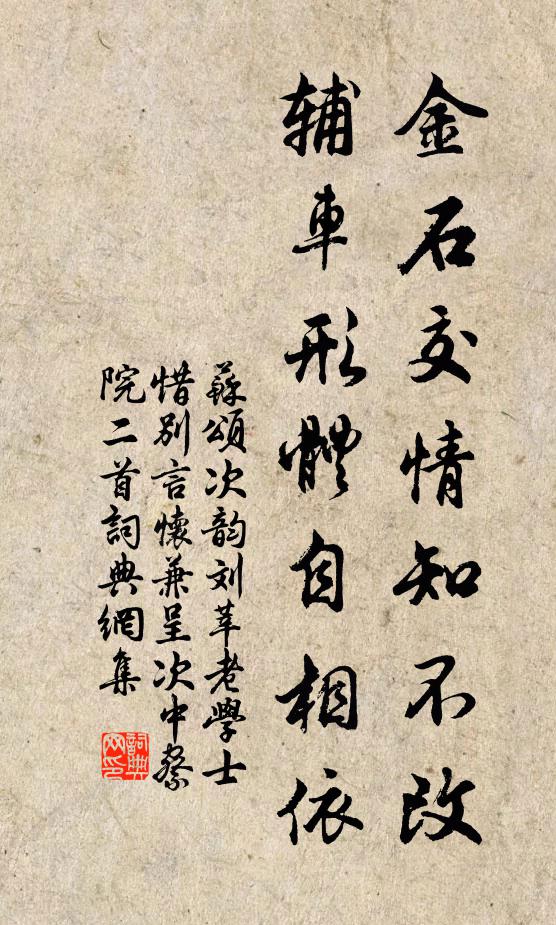 金石交情知不改
辅車形體自相依
蘇頌次韵刘莘老學士
惜別言懷兼呈次中祭
院二首詞典網集
詞典
网印